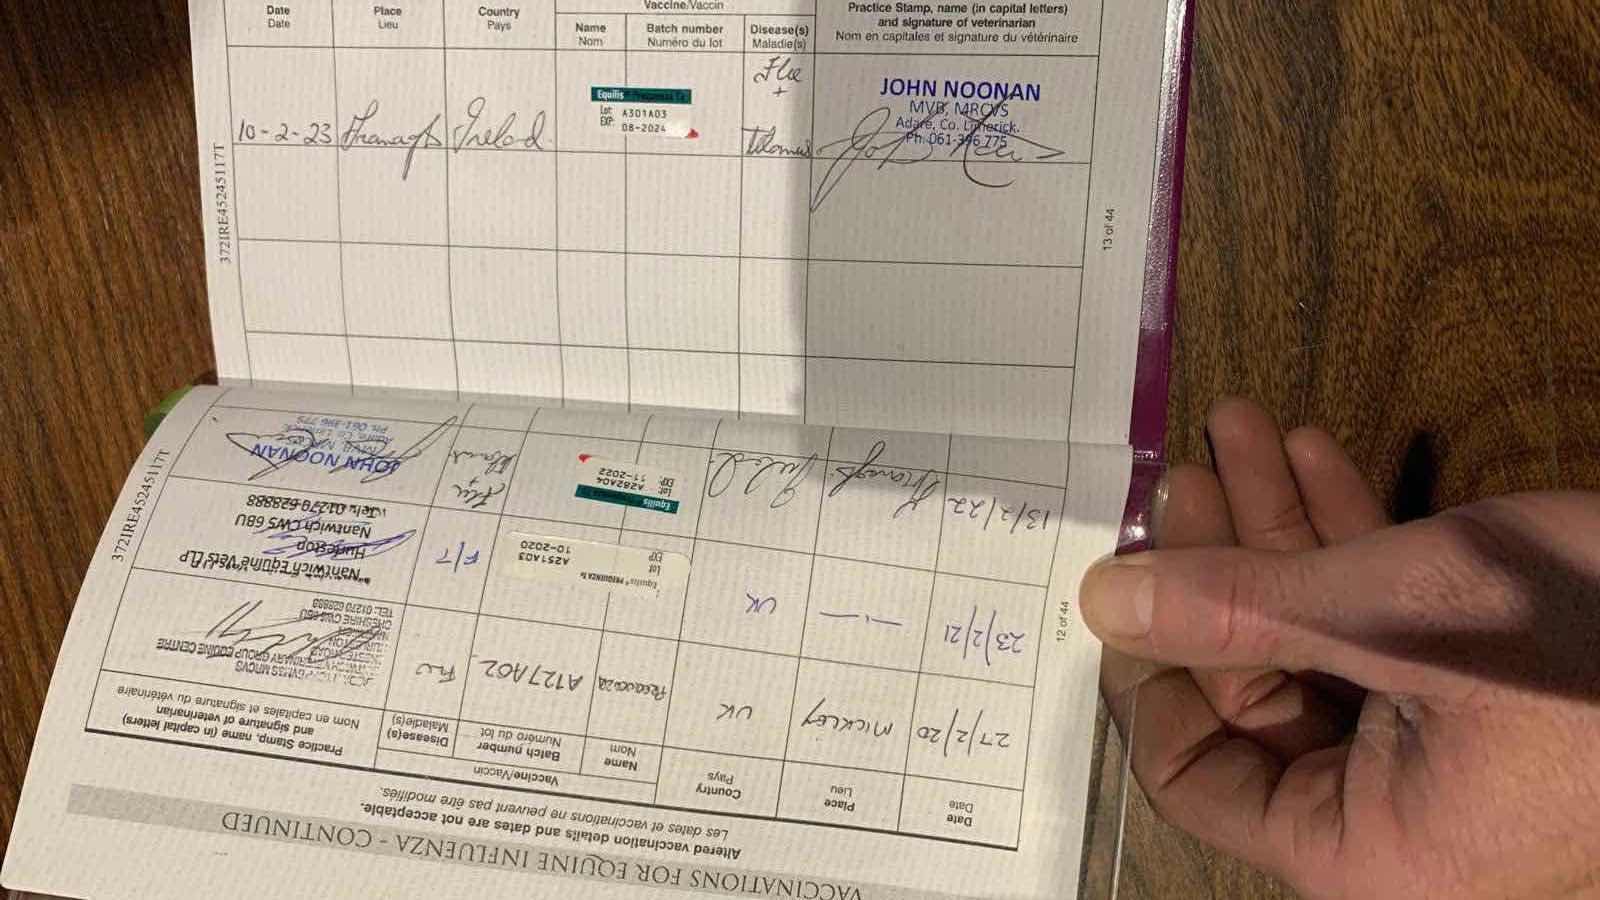 Date
Date
Place
Lieu
Country
Pays
Vaccine/Vaccin
Name
Nom
Batch number
Numéro du lot
Disease(s)
Maladie(s)
Practice Stamp, name (in capital letters)
and signature of veterinarian
Nom en capitales et signature du vétérinaire
10-2-23
Equilis
Lot: A301A03
EXP: 08-2024
Flu
+
JOHN NOONAN
MVB, MRCVS
Adare, Co. Limerick.
Ph. 061-396 775
372IRE45245117T
13 of 44
VACCINATIONS FOR EQUINE INFLUENZA - CONTINUED
Altered vaccination details and dates are not acceptable.
Les dates et vaccinations ne peuvent pas être modifiés.
Date
Date
Place
Lieu
Country
Pays
Vaccine/Vaccin
Name
Nom
Batch number
Numéro du lot
Disease(s)
Maladie(s)
Practice Stamp, name (in capital letters)
and signature of veterinarian
Nom en capitales et signature du vétérinaire
27/2/20
MICKLEY
UK
A127A02
Flu
EQUINE CENTRE
CHESHIRE CW5 6BU
TEL: 01270 628888
23/2/21
UK
Equilis® PREQUENZA Te
Lot A251A03
EXP 10-2020
F/T
Nantwich Equine Vets LLP
Hurleston
Nantwich CW5 6BU
Tel: 01270 628888
13/2/22
Equilis
Lot A282A04
EXP: 11-2022
Flu
+
JOHN NOONAN
MVB, MRCVS
Adare, Co. Limerick.
Ph. 061-396 775
372IRE45245117T
12 of 44